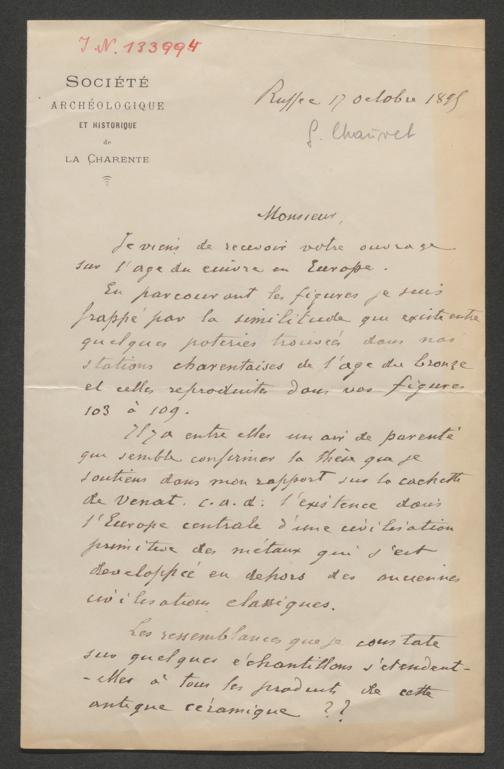 J N. 133994
SOCIÉTÉ
ARCHÉOLOGIQUE
ET HISTORIQUE
de
LA CHARENTE
Ruffec 17 octobre 1895
G. Chauvet
Monsieur,
Je viens de recevoir votre ouvrage
sur l'age du cuivre en Europe.
En parcourant les figures je suis
frappé par la similitude qui existe entre
quelques poteries trouvées dans nos
stations charentaises de l'age du bronze
et celles reproduites dans vos figures
103 à 109.
Il y a entre elles un air de parenté
qui semble confirmer la thèse que je
soutiens dans mon rapport sur la cachette
de Venat. c.a.d: l'existence dans
l'Europe centrale d'une civilisation
primitive des métaux qui s'est
developpée en dehors des anciennes
civilisations classiques.
Les ressemblances que je constate
sur quelques échantillons s'etendent-
-elles à tous les produits de cette
antique céramique ??